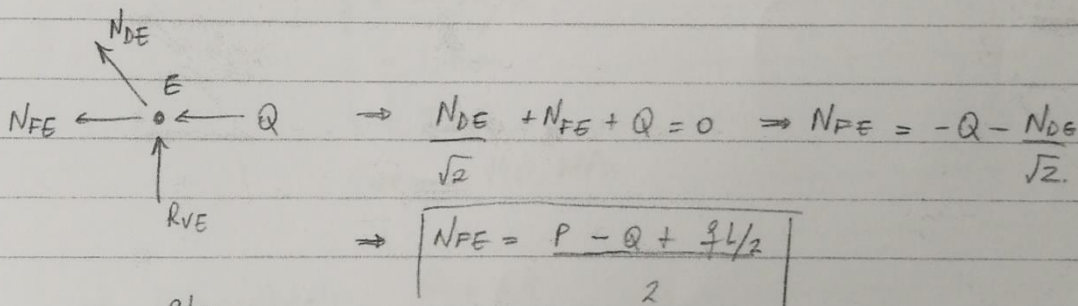 N_DE
E
N_FE ← • ← Q ⇒ N_DE/√2 + N_FE + Q = 0 ⇒ N_FE = -Q - N_DE/√2.
R_VE
⇒ N_FE = (P - Q + qL/2)/2